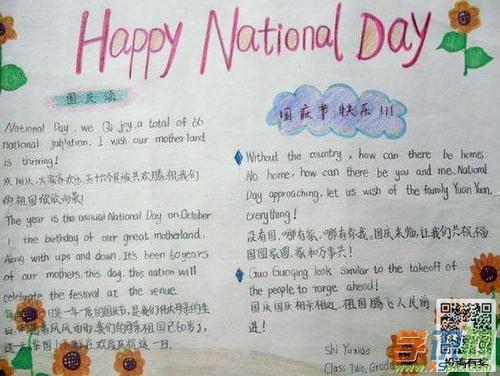 Happy National Day
国庆颂
National Day, we Qi joy a total of 66
national jubilation. I wish our motherland
is thriving!
庆国庆,大家齐欢乐,五十六个民族共欢腾,祖我们
的祖国欣欣向荣!
The year is the annual National Day on October
1, the birthday of our great motherland.
Along with ups and down. It's been 60 years
of our mothers, this day, this nation will
celebrate the festival at the venue.
一年一度的国庆节,是我们伟大母亲的生
风风雨雨,我们的母亲祖国已60岁了,
这一天举国上下都在欢度庆祝这一日.
国庆节快乐!!!
Without the country, how can there be homes
No home, how can there be you and me. National
Day approaching, let us wish of the family Yuan Yuan,
everything!
没有国,哪有家,哪有你我。国庆来临,让我们共祝福
国圆家圆,家和万事兴!
Guo Guoqing look similar to the takeoff of
the people to range ahead!
国庆国庆相亲相近,祖国腾飞人民前
进!
Shi Yuxiao
Class Two, Grade